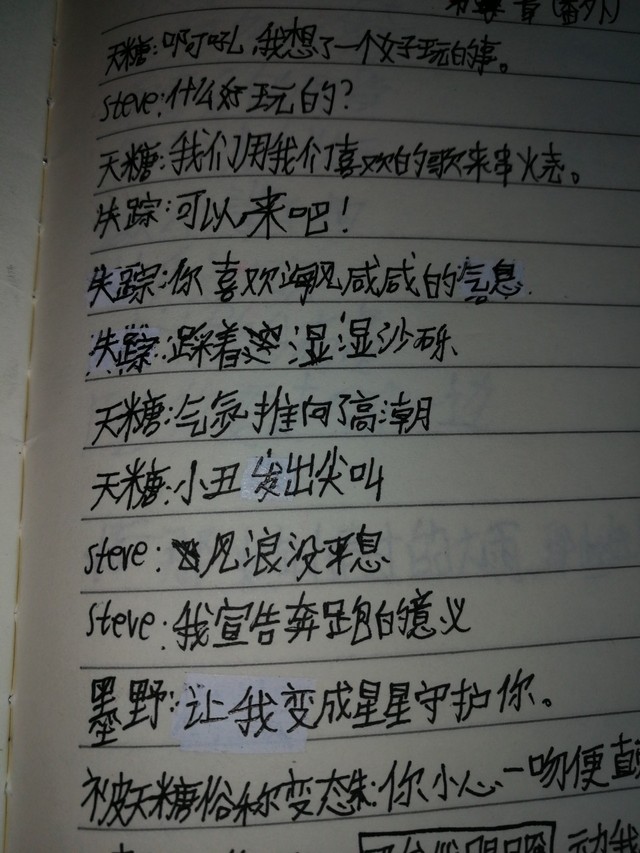 章(番外)
天糖:啊吖吼,我想了一个好玩的事。
steve:什么好玩的?
天糖:我们用我们喜欢的歌来串火烧。
失踪:可以来吧!
失踪:你喜欢海风咸咸的气息.
失踪:踩着湿湿沙砾、
天糖:气氛推向了高潮
天糖:小丑发出尖叫
steve:风浪没平息
steve:我宣告奔跑的意义
墨野:让我变成星星守护你。
被天糖俗称变态朱:你小心一吻便颠
动我